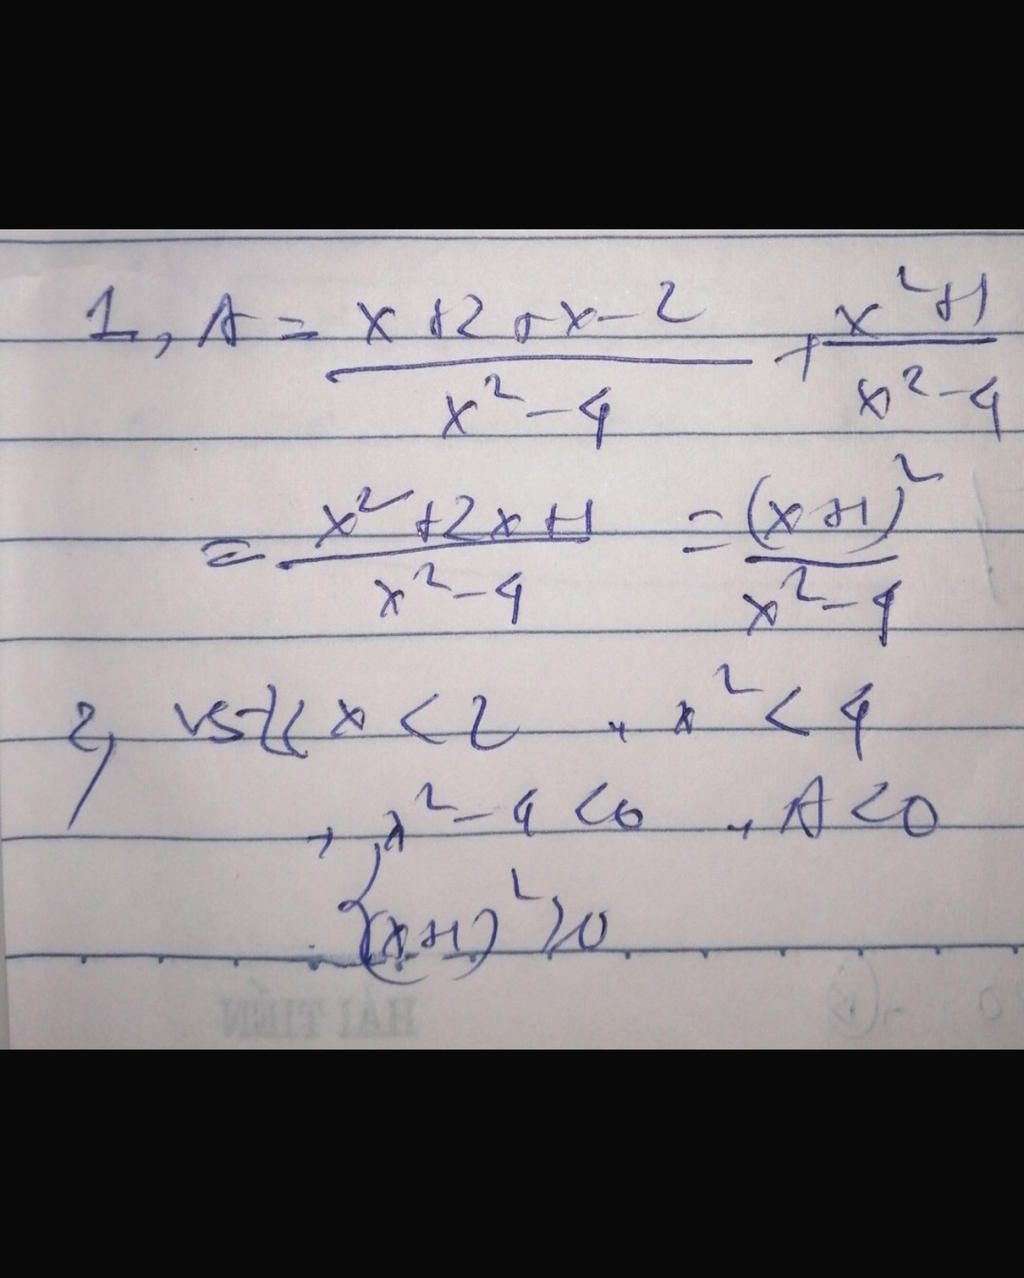 1, A = (x+2+x-2)/(x²-4) + (x²+1)/(x²-4)
= (x²+2x+1)/(x²-4) = (x+1)²/(x²-4)
2, x < 2 , x² < 4
, x²-4 <0 , A <0
(x+1)² >0
HẢI TIẾN